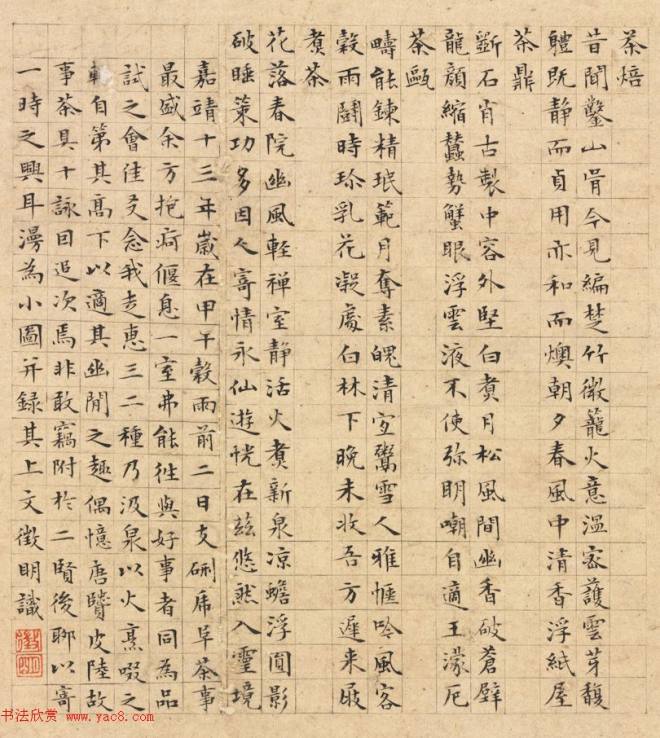 茶焙
昔聞鑿山骨今見編楚竹微籠火意溫密護雲芽馥
體既静而貞用亦和而燠朝夕春風中清香浮紙屋
茶鼎
斵石肖古製中容外堅白煑月松風間幽香破蒼壁
龍頭縮蠶勢蟹眼浮雲液不使弥明嘲自適王濛厄
茶甌
疇能鍊精珉範月奪素魄清宜鬻雪人雅愜吟風客
穀雨鬭時珎乳花凝處白林下晚未收吾方遲来屐
煑茶
花落春院幽風軽禅室静活火煑新泉凉蟾浮圓影
破睡策功多因人寄情永仙遊恍在兹悠然入靈境
嘉靖十三年嵗在甲午穀雨前二日支硎虎阜茶事
最盛余方抱疴偃息一室弗能往與好事者同為品
試之會佳友念我走惠三二種乃汲泉以火烹啜之
輙自第其髙下以適其幽閒之趣偶憶唐贒皮陸故
事茶具十詠因追次焉非敢竊附於二賢後聊以寄
一時之興耳漫為小圖并録其上文徵明識
徵明
书法欣赏 www.yac8.com